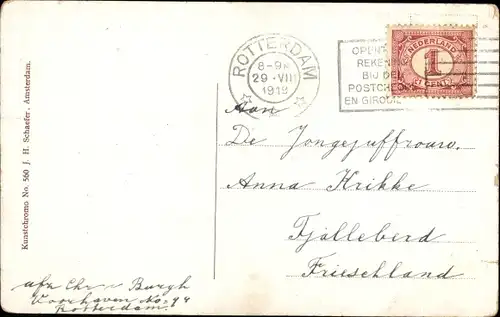 ROTTERDAM
8-9V
29 VIII
1919
OPENT
REKENING
BIJ DE
POSTCHEQ
EN GIRODIE
NEDERLAND
1
CENT
Aan
De Jongejuffrouw.
Anna Krikke
Tjalleberd
Frieschland
afz Chr. Burgh
Voorhaven No. 94
Rotterdam.
Kunstchromo No. 560 J. H. Schaefer, Amsterdam.